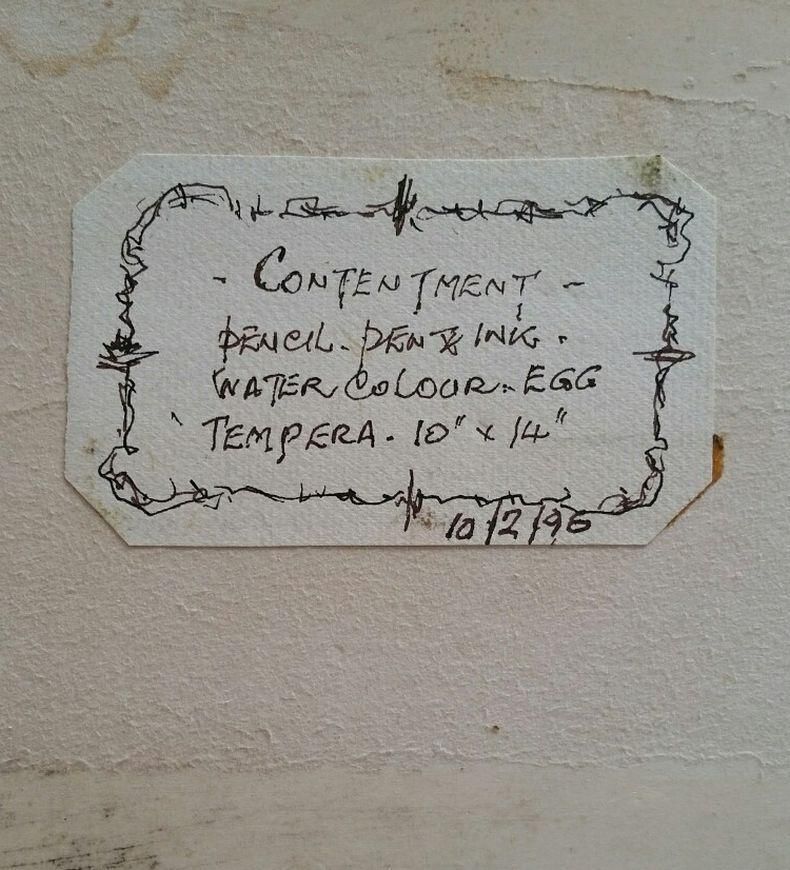 - CONTENTMENT -
PENCIL. PEN & INK.
WATER COLOUR. EGG
TEMPERA. 10" x 14"
10/2/96